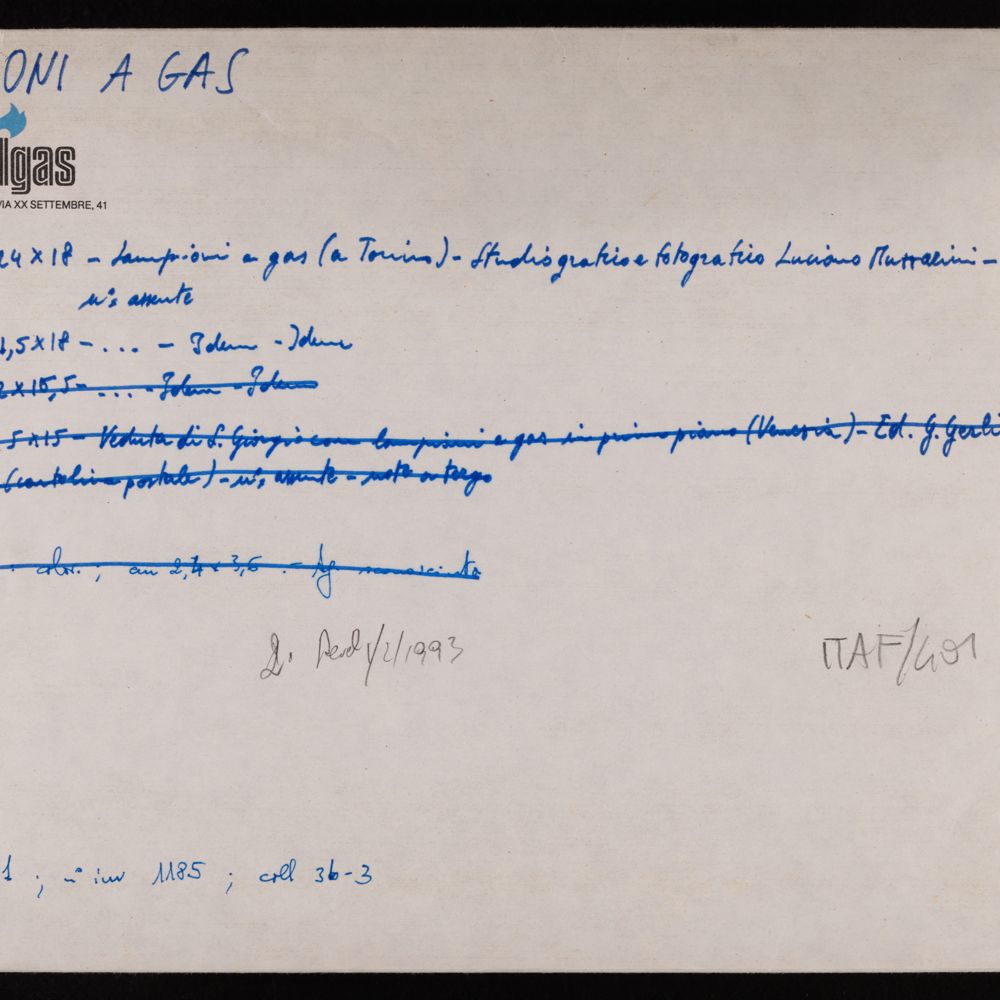 ONI A GAS
lgas
VIA XX SETTEMBRE, 41
24 x 18 - Lampioni a gas (a Torino) - Studio grafico e fotografico Luciano -
n° assente
,5 x 18 - ... - Idem - Idem
2 x 15,5 - ... - Idem - Idem
5 x 15 - Veduta di S. Giorgio con lampioni a gas in primo piano (Venezia) - Ed. G. Gerli
(cartolina postale) - n° assente - note a tergo
color. ; cm 2,4 x 3,6 - Ag. sconosciuta
1/2/1993
ITAF/401
1 ; n° inv 1185 ; coll 3b-3